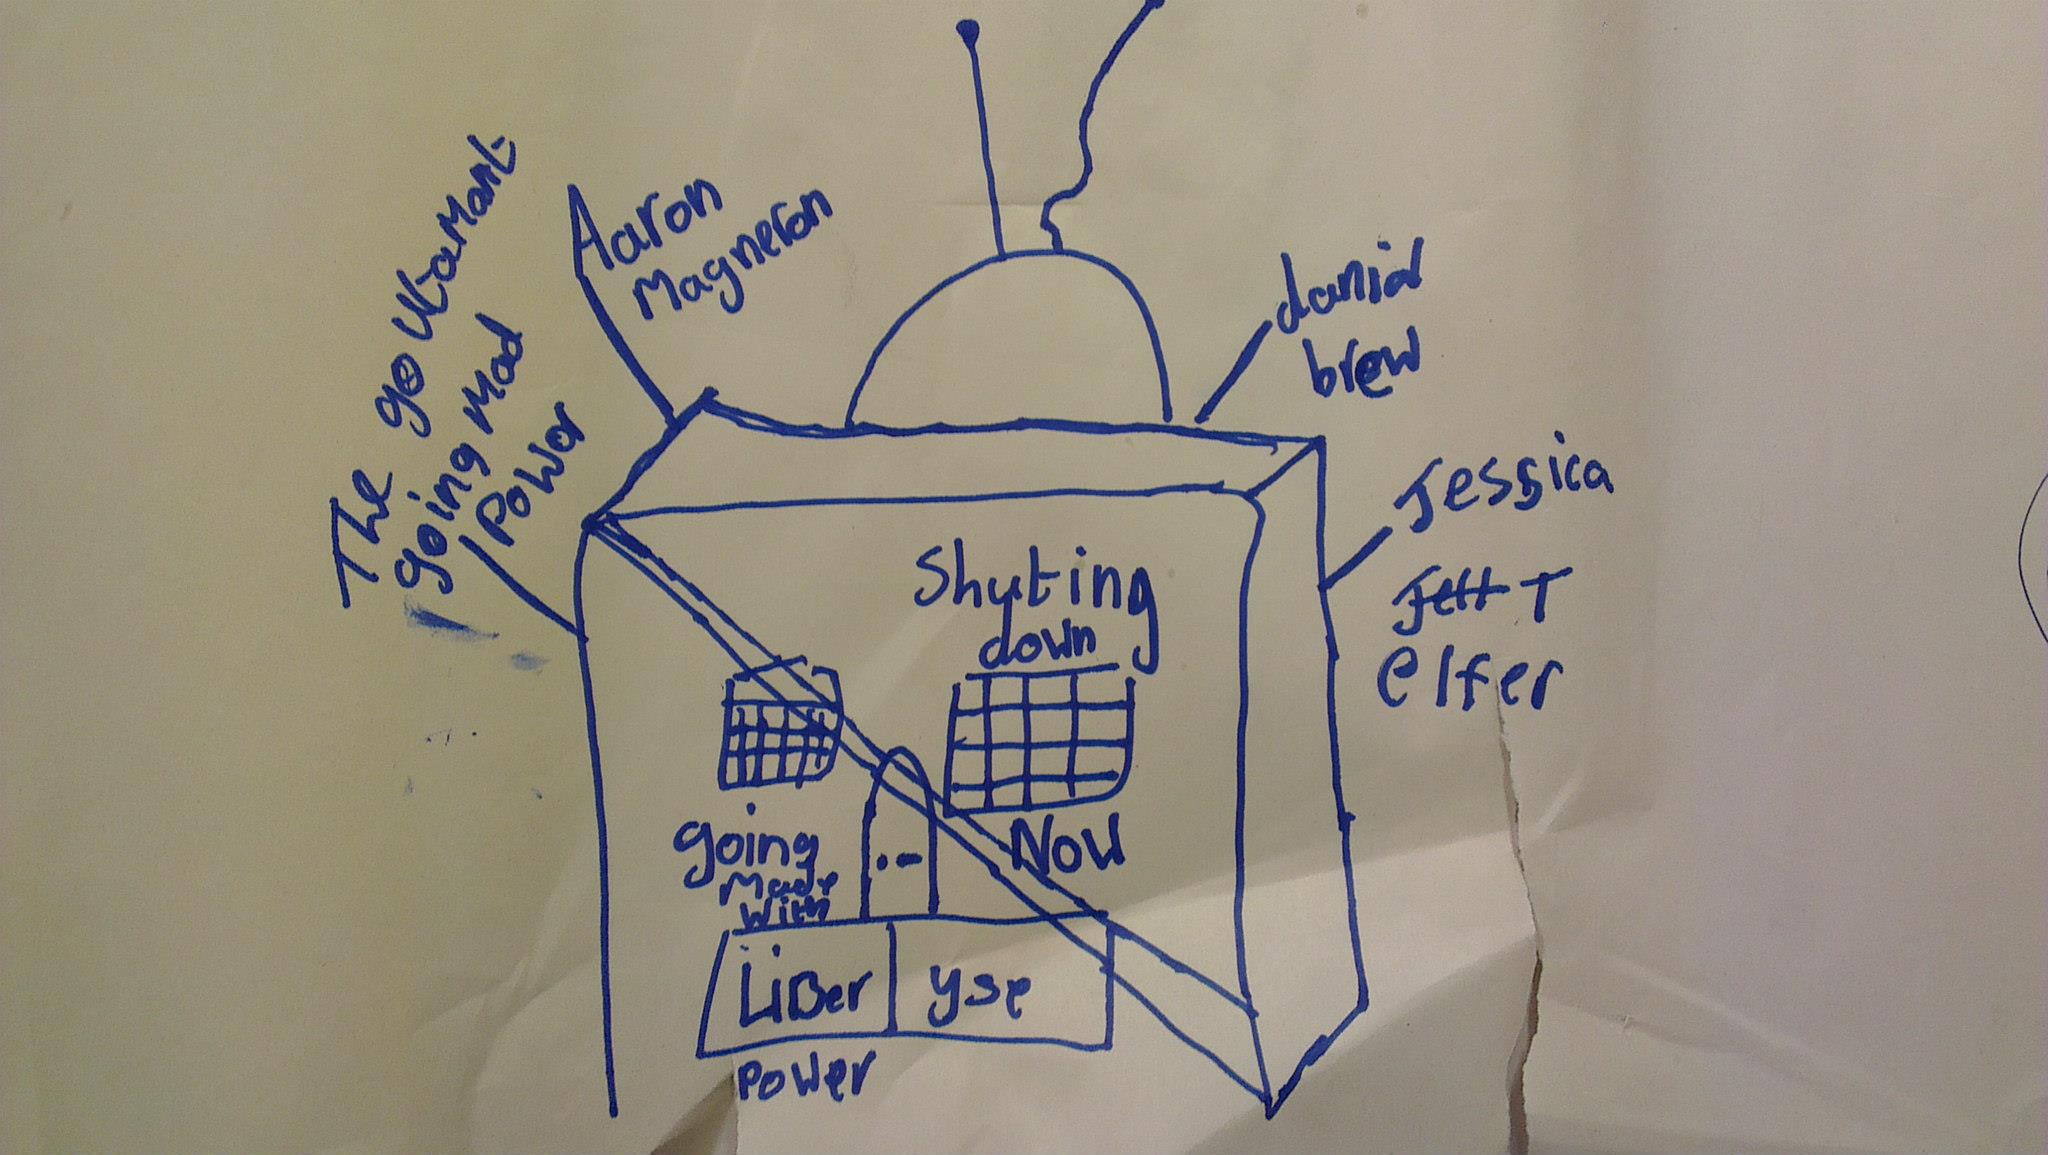 The govtarmant
going mad
Power
Aaron
Magneron
danial
brew
Jessica
T
elfer
Shuting
down
Now
going
with
LiBer yse
power